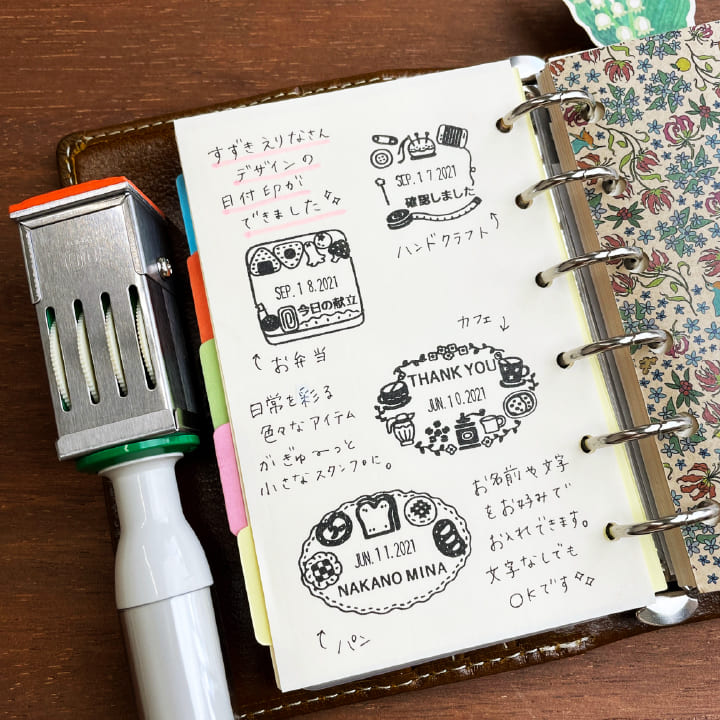 すずきえりなさん
デザインの
日付印が
できました
SEP. 17.2021
確認しました
ハンドクラフト
SEP. 18.2021
今日の献立
お弁当
カフェ
THANK YOU
JUN. 10.2021
日常を彩る
色々なアイテム
がぎゅ〜っと
小さなスタンプに。
JUN. 11.2021
NAKANO MINA
パン
お名前や文字
をお好みで
お入れできます。
文字なしでも
OKです